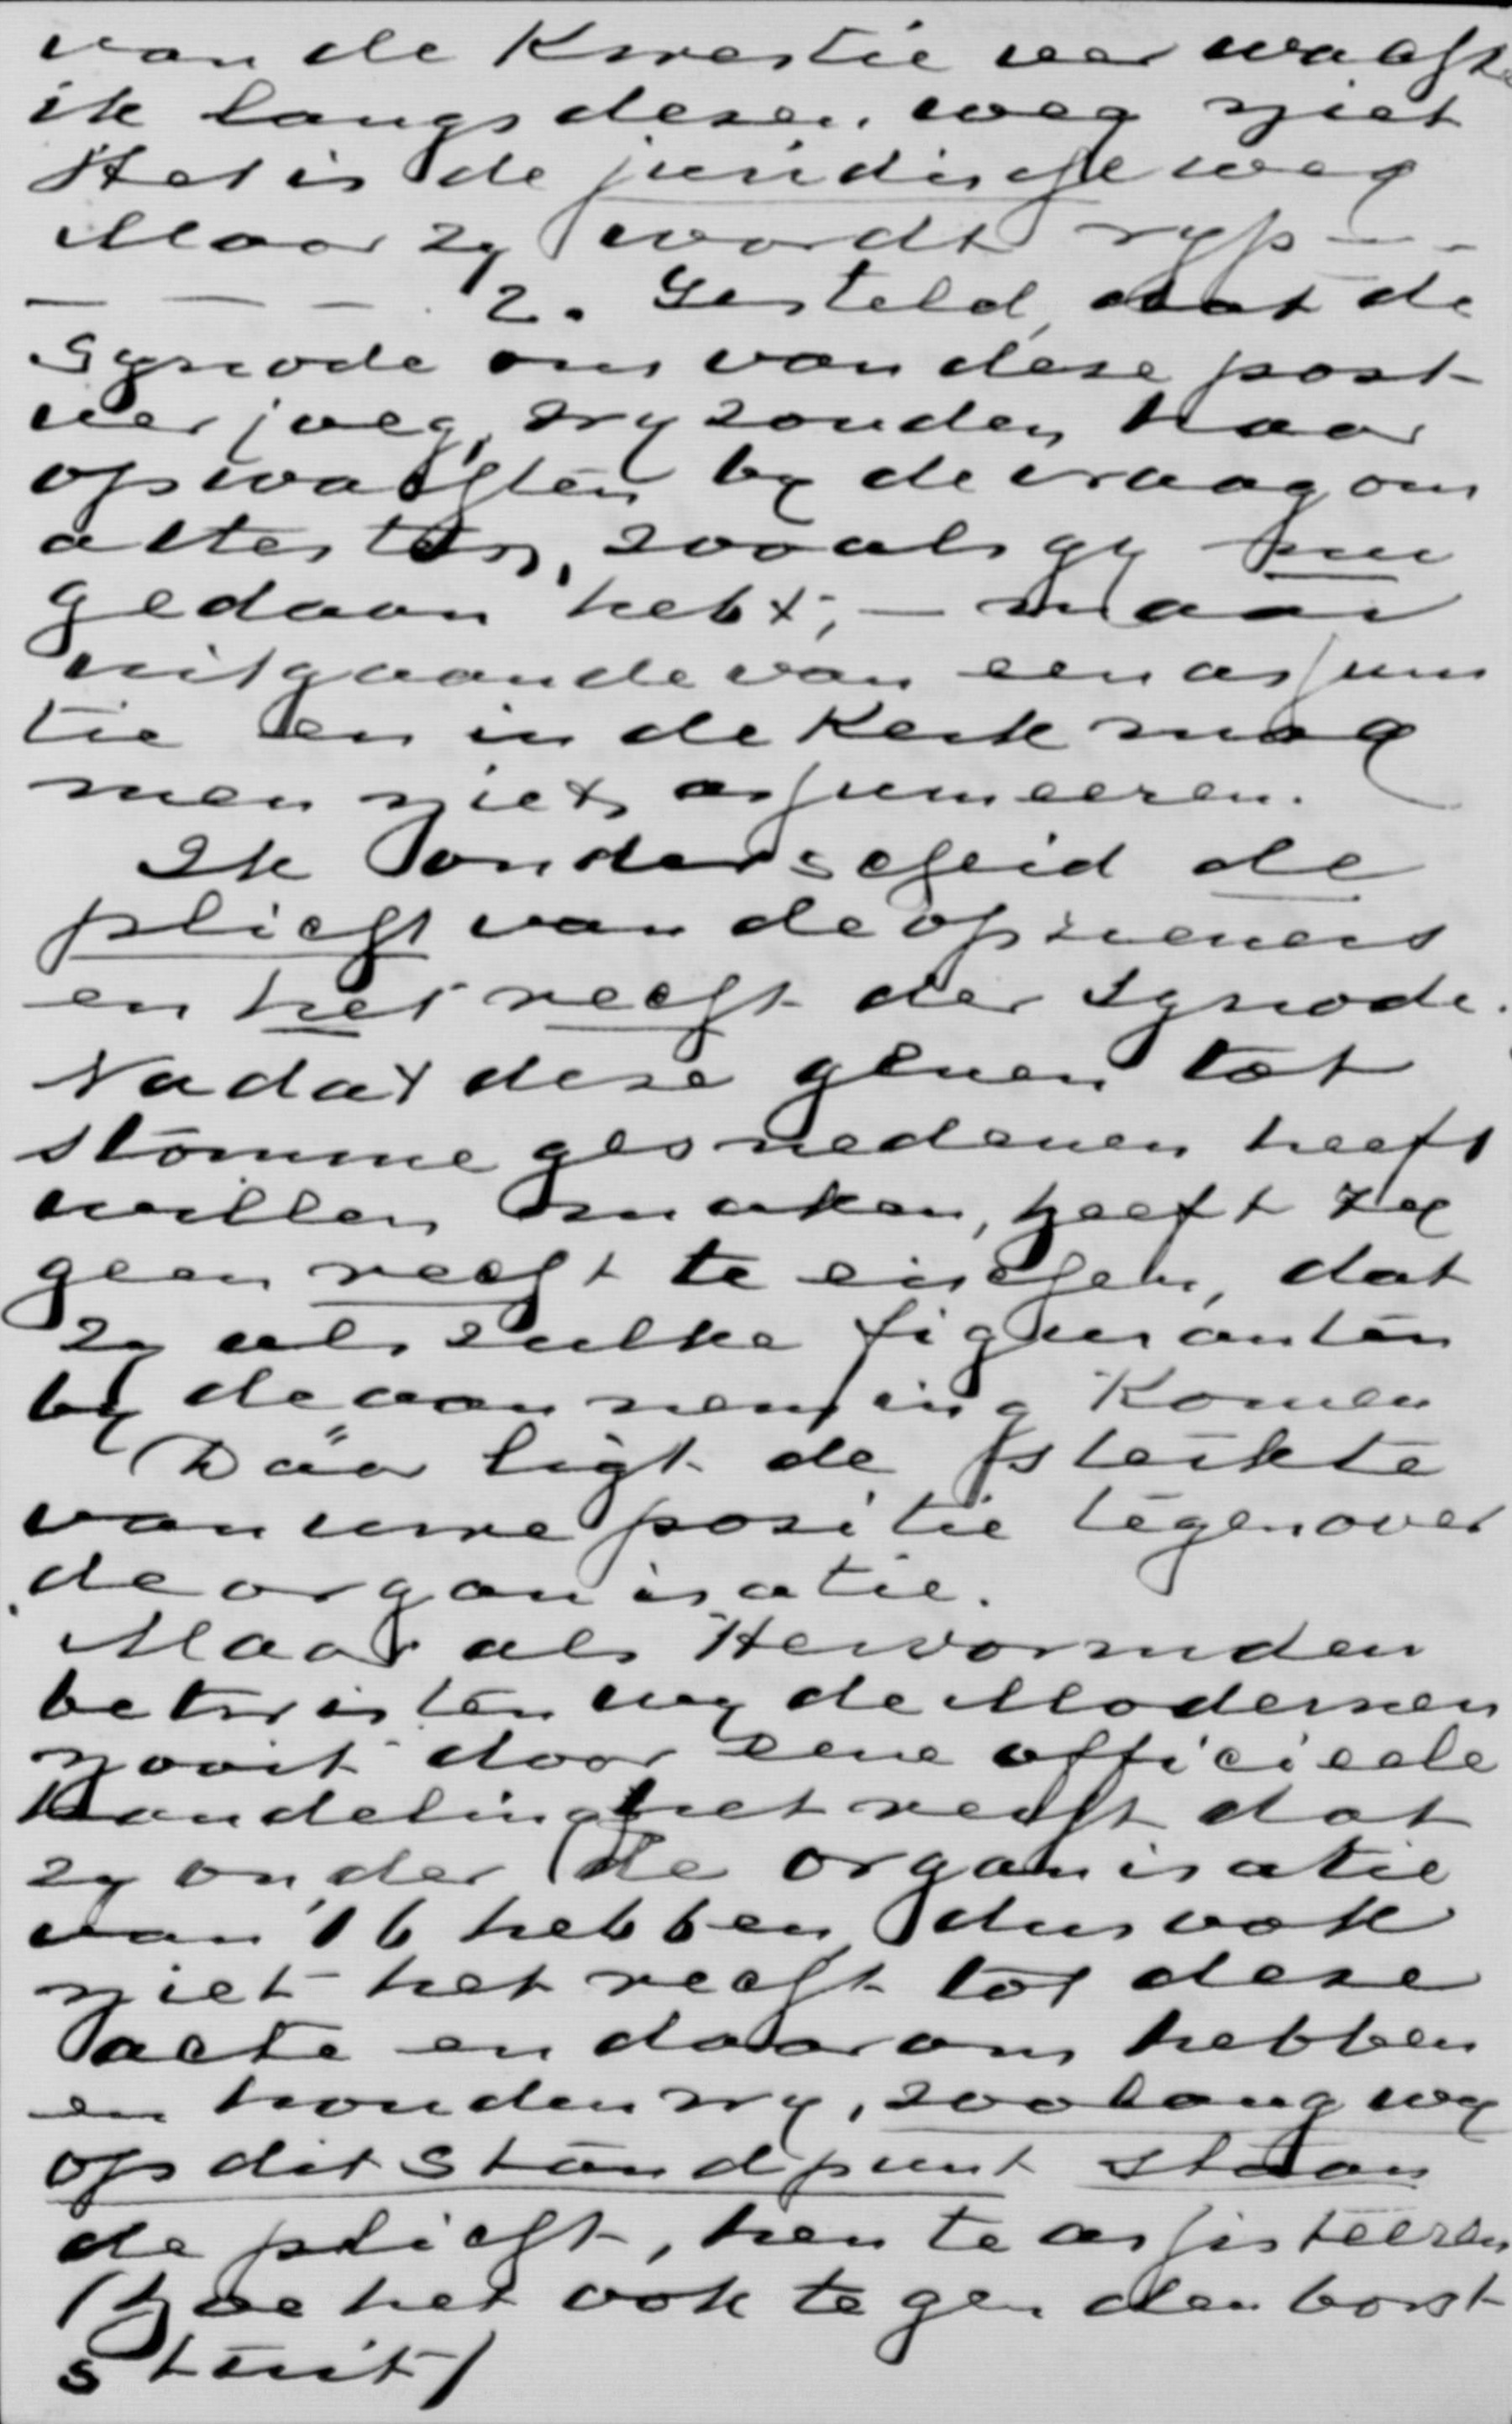 van de Kwestie verwacht
ik langs dezen weg niet
Het is de juridische weg
Maar zy wordt ryp - -
- - - . 2. Gesteld, dat de
Synode ons van deze post
verjoeg, wy zouden haar
opwachten by de vraag om
attesten, zooals gy nu
gedaan hebt; - maar
uitgaande van een assum
tie en in de Kerk mag
men niets assumeeren.
Ik onderscheid de
plicht van de opzieners
en het recht der Synode.
Nadat deze tot
stomme gesnedenen heeft
willen maken, heeft zy
geen recht te eischen, dat
zy als zulke figuranten
by de aanneming Komen
Dáár ligt de sterkte
van uwe positie tegenover
de organisatie.
Maar als Hervormden
betwisten wy de Modernen
nooit door eene officieele
handeling het recht dat
zy onder de organisatie
van '16 hebben, dus ook
niet het recht tot deze
acte en daarom hebben
en houden wy, zoolang wy
op dit standpunt staan
de plicht, hen te assisteeren
(hoe het ook tegen den borst
stuit)